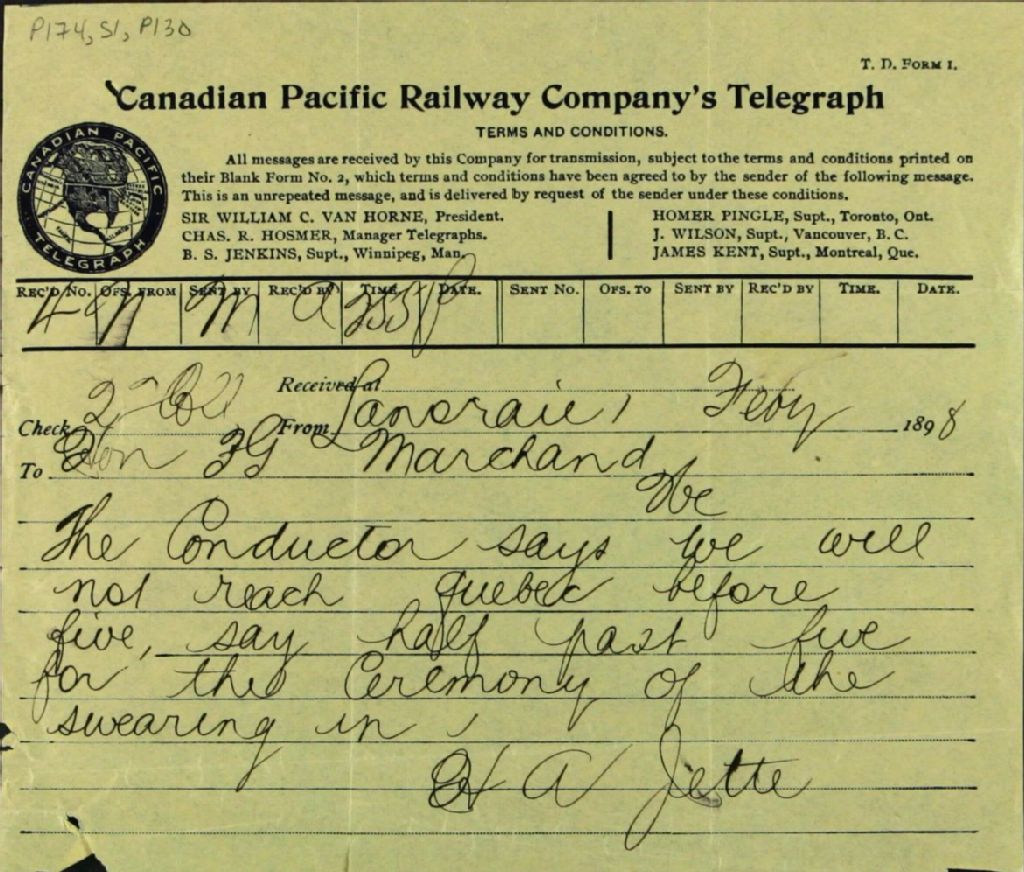 P174, S1, P130
T. D. FORM 1.
Canadian Pacific Railway Company's Telegraph
TERMS AND CONDITIONS.
CANADIAN PACIFIC TELEGRAPH
All messages are received by this Company for transmission, subject to the terms and conditions printed on
their Blank Form No. 2, which terms and conditions have been agreed to by the sender of the following message.
This is an unrepeated message, and is delivered by request of the sender under these conditions.
SIR WILLIAM C. VAN HORNE, President.
CHAS. R. HOSMER, Manager Telegraphs.
B. S. JENKINS, Supt., Winnipeg, Man.
HOMER PINGLE, Supt., Toronto, Ont.
J. WILSON, Supt., Vancouver, B. C.
JAMES KENT, Supt., Montreal, Que.
REC'D NO. OFS. FROM SENT BY REC'D BY TIME. DATE. SENT NO. OFS. TO SENT BY REC'D BY TIME. DATE.
4 N M
Received at
Check From Lanoraie 1 Feby 1898
To Hon FG Marchand
The Conductor says we will
not reach Quebec before
five, say half past five
for the Ceremony of the
swearing in,
H A Jette